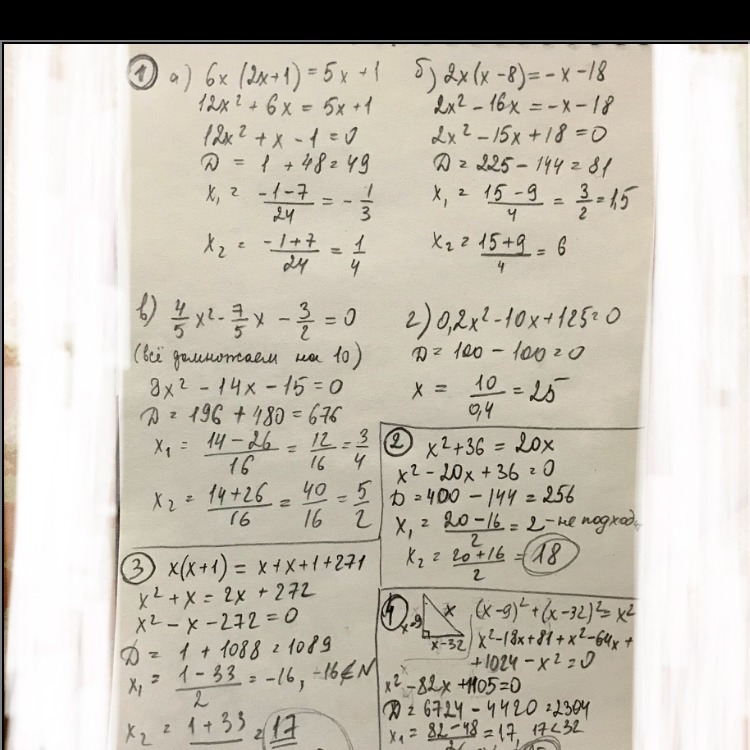 1 а) 6x(2x+1) = 5x+1
12x² + 6x = 5x+1
12x² + x - 1 = 0
D = 1 + 48 = 49
x₁ = (-1-7)/24 = -1/3
x₂ = (-1+7)/24 = 1/4
б) 2x(x-8) = -x-18
2x² - 16x = -x - 18
2x² - 15x + 18 = 0
D = 225 - 144 = 81
x₁ = (15-9)/4 = 3/2 = 1,5
x₂ = (15+9)/4 = 6
в) 4/5 x² - 7/5 x - 3/2 = 0
(всё домножаем на 10)
8x² - 14x - 15 = 0
D = 196 + 480 = 676
x₁ = (14-26)/16 = 12/16 = 3/4
x₂ = (14+26)/16 = 40/16 = 5/2
г) 0,2x² - 10x + 125 = 0
D = 100 - 100 = 0
x = 10/0,4 = 25
2 x² + 36 = 20x
x² - 20x + 36 = 0
D = 400 - 144 = 256
x₁ = (20-16)/2 = 2 - не подход
x₂ = (20+16)/2 = 18
3 x(x+1) = x+x+1+271
x² + x = 2x + 272
x² - x - 272 = 0
D = 1 + 1088 = 1089
x₁ = (1-33)/2 = -16, -16 ∉ N
x₂ = 1+33 = 17
4 x-9 x x-32 (x-9)² + (x-32)² = x²
x² - 18x + 81 + x² - 64x +
+ 1024 - x² = 0
x² - 82x + 1105 = 0
D = 6724 - 4420 = 2304
x₁ = (82-48) = 17, 17 < 32